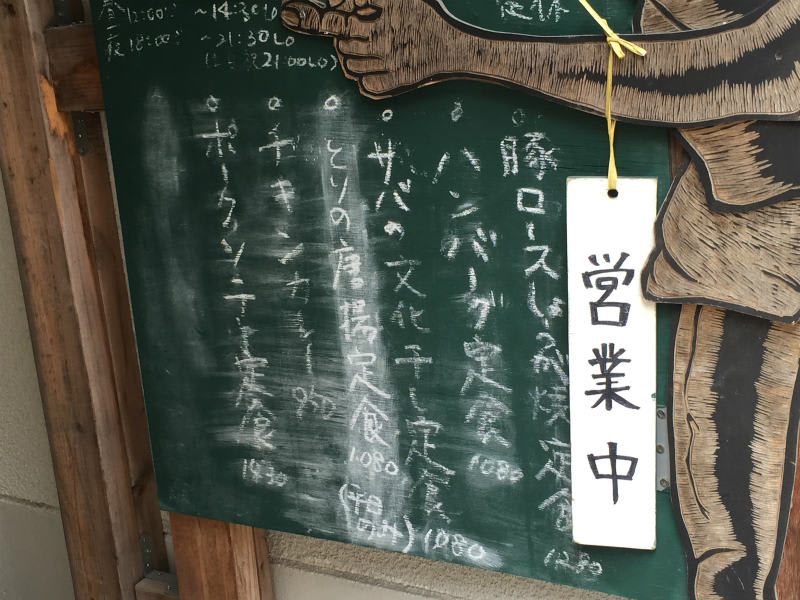 昼12:00〜14:30LO
夜18:00〜21:30LO
定休
豚ロースしょうが焼定食 1280
ハンバーグ定食 1080
サバの文化干し定食 1080
とりの唐揚定食 1080
(平日のみ)
チキンカレー 980
ポークソテー定食 1430
営業中